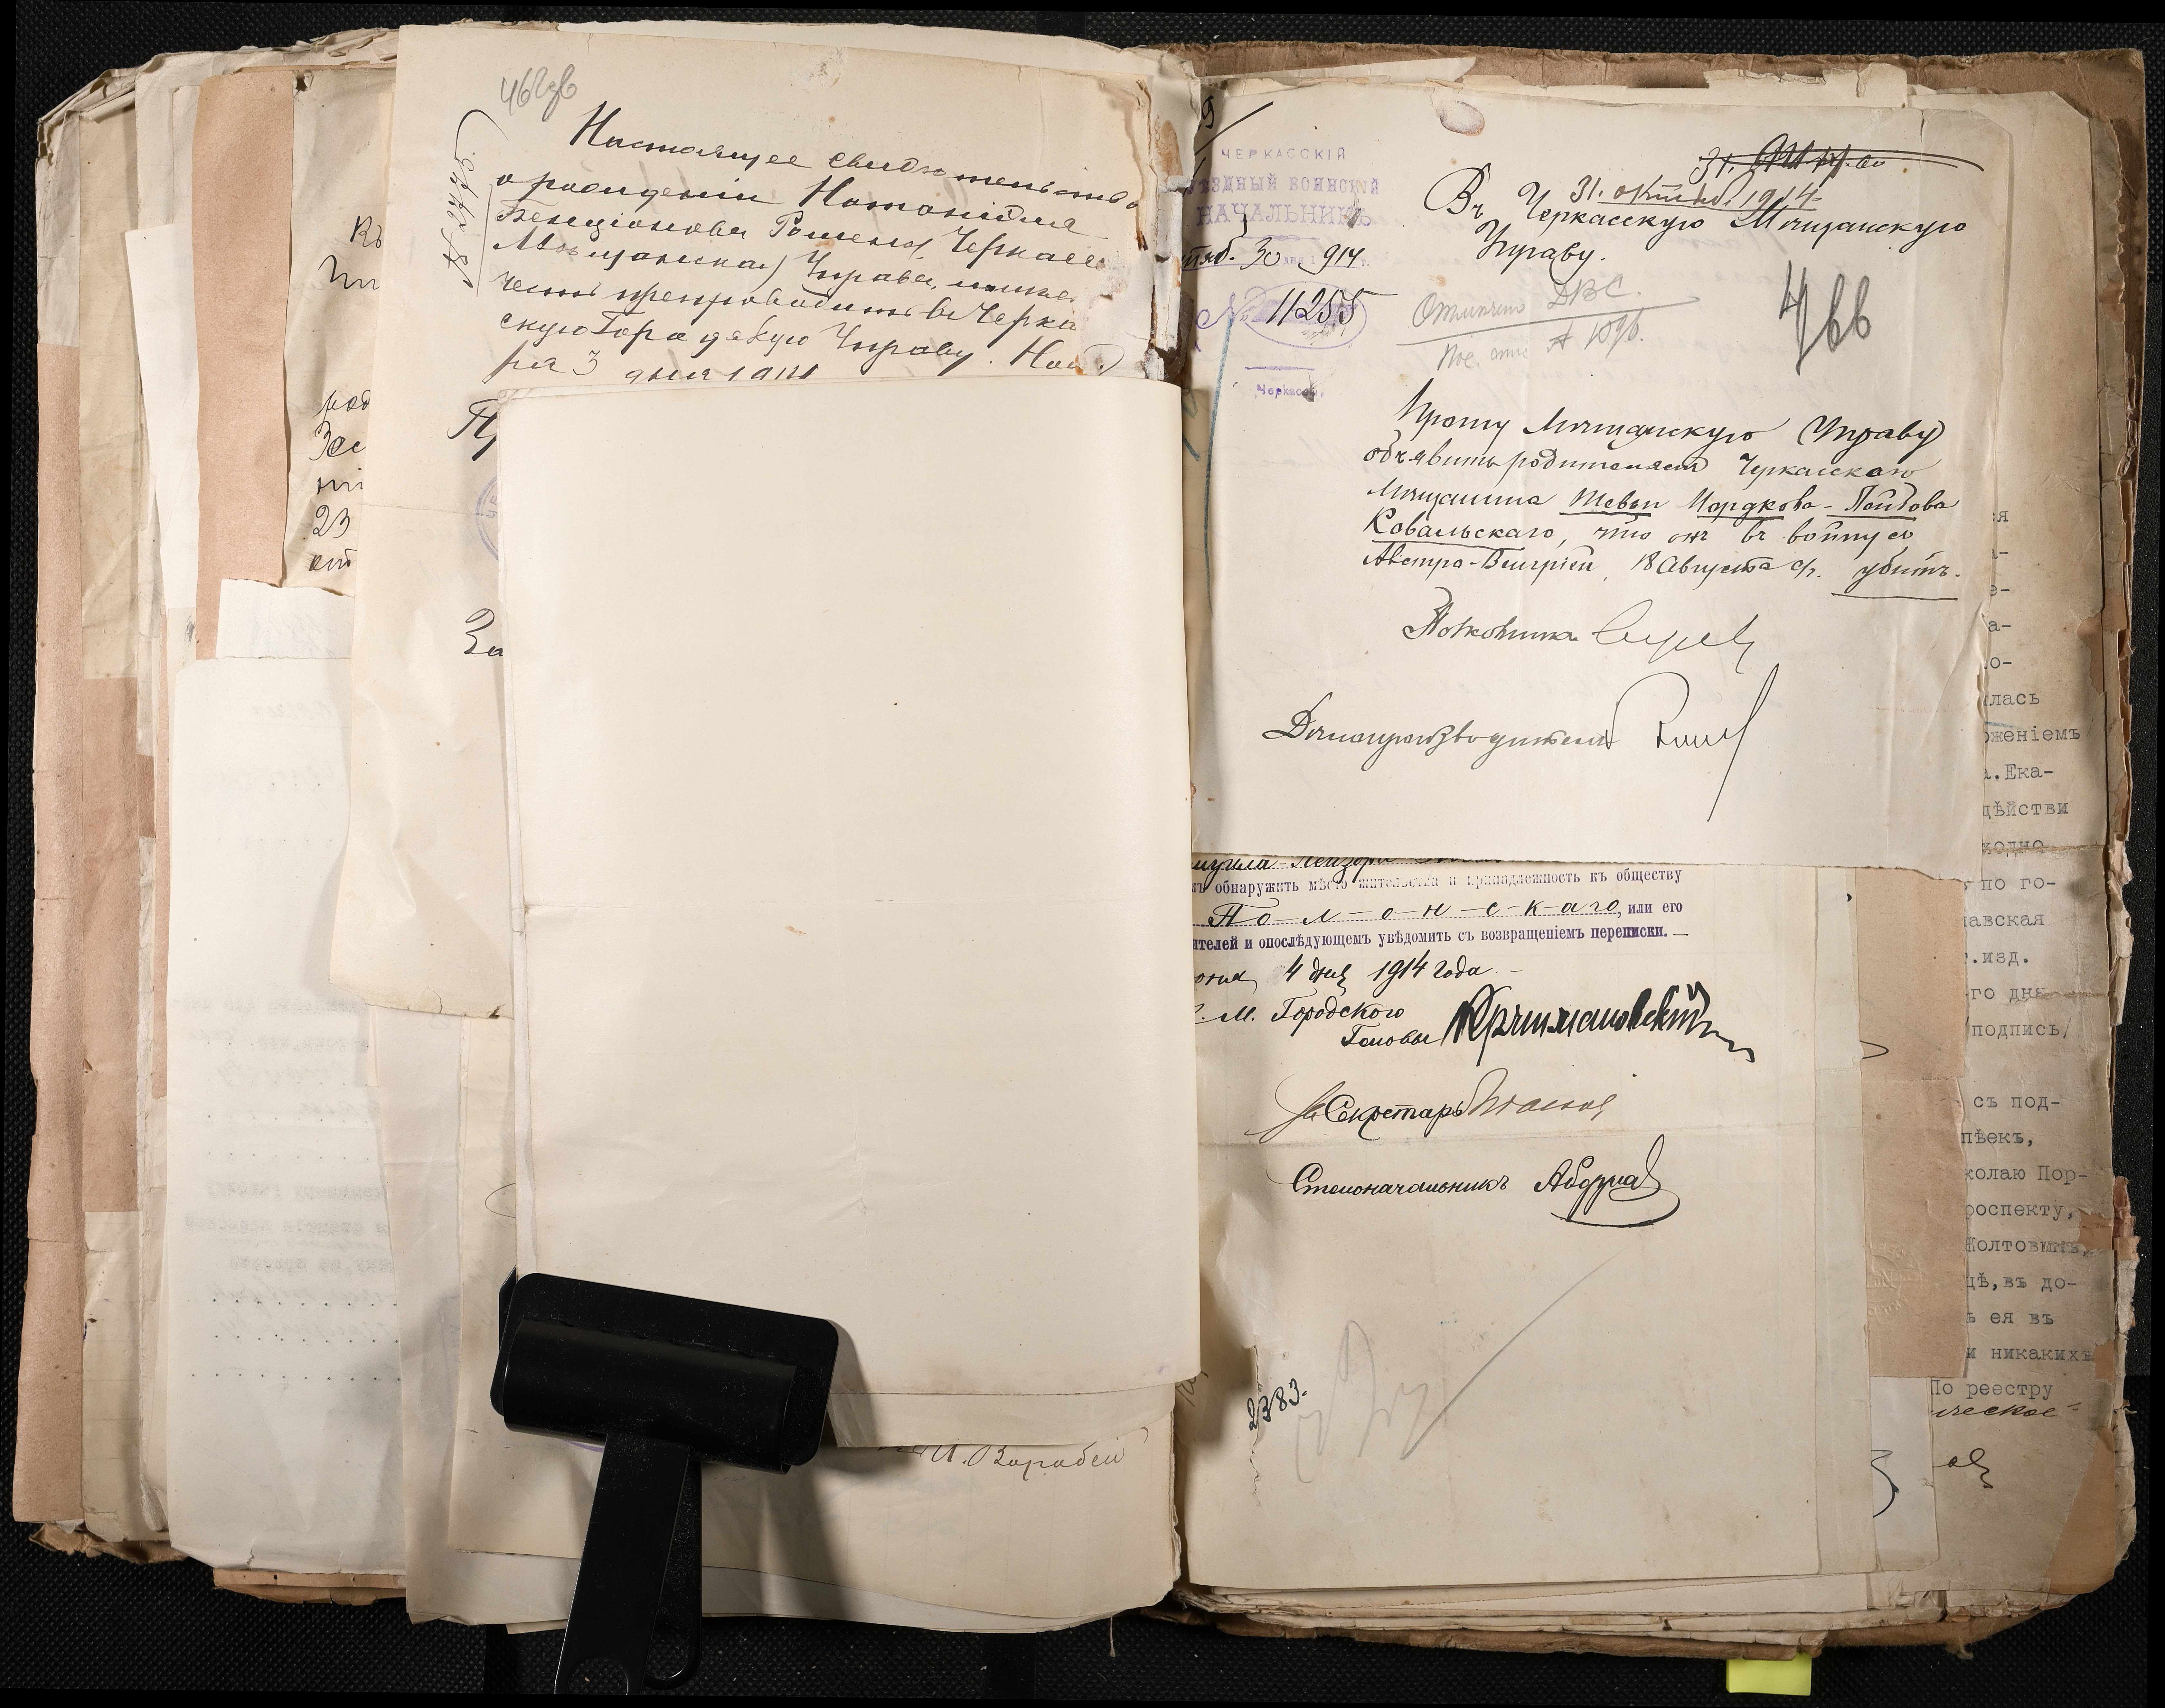 462об
Настоящее свидѣтельство
о рожденіи Натаніила
Бенціонова Рашена, Черкасс
Мѣщанская Управа, имѣе
честь препроводить въ Черкас
скую Городскую Управу. Нояб
ря 3 дня 1914
Къ
род
Зас
23
от
За
И. Воробей
ЧЕРКАССКІЙ
УѢЗДНЫЙ ВОИНСКІЙ
НАЧАЛЬНИКЪ
тяб. 30 дня 1914 г.
№ 11255
Черкассы
31. октяб. 1914
Въ Черкасскую Мѣщанскую
Управу.
466
Прошу Мѣщанскую Управу
объявить родителямъ Черкасскаго
Мѣщанина Шевеи Мордкова-Лейбова
Ковальскаго, что онъ въ войну съ
Австро-Венгріей, 18 Августа с/г. убитъ.
Полковникъ
Дѣлопроизводитель
муила-Лейзора
мъ обнаружить мѣсто жительства и принадлежность къ обществу
По-л-о-н-с-к-аго, или его
ителей и опослѣдующемъ увѣдомить съ возвращеніемъ переписки. —
юня 4 дня 1914 года. —
С. М. Городского
Головы
Секретарь
Столоначальникъ
2383.
ся
а-
е-
а-
о-
лась
оженіемъ
а.Ека-
дѣйстви
ходно
по го-
лавская
г.изд.
го дня
/подпись/
съ под-
пѣекъ,
колаю Пор-
роспекту,
Жолтовинъ,
дѣ,въ до-
ь ея въ
и никакихъ
По реестру
ическое